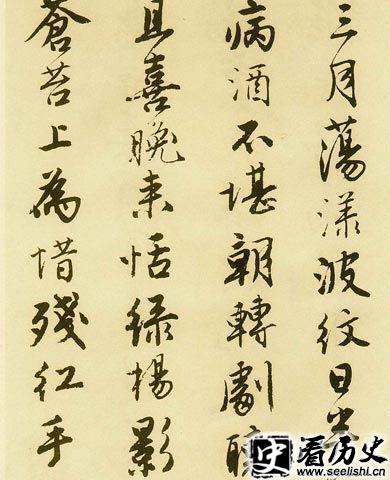 三月蕩漾波紋日半
病酒不堪朝轉劇聽
且喜晚来恬綠楊影
蒼苔上為惜殘紅手
史看历史
www.seelishi.cn